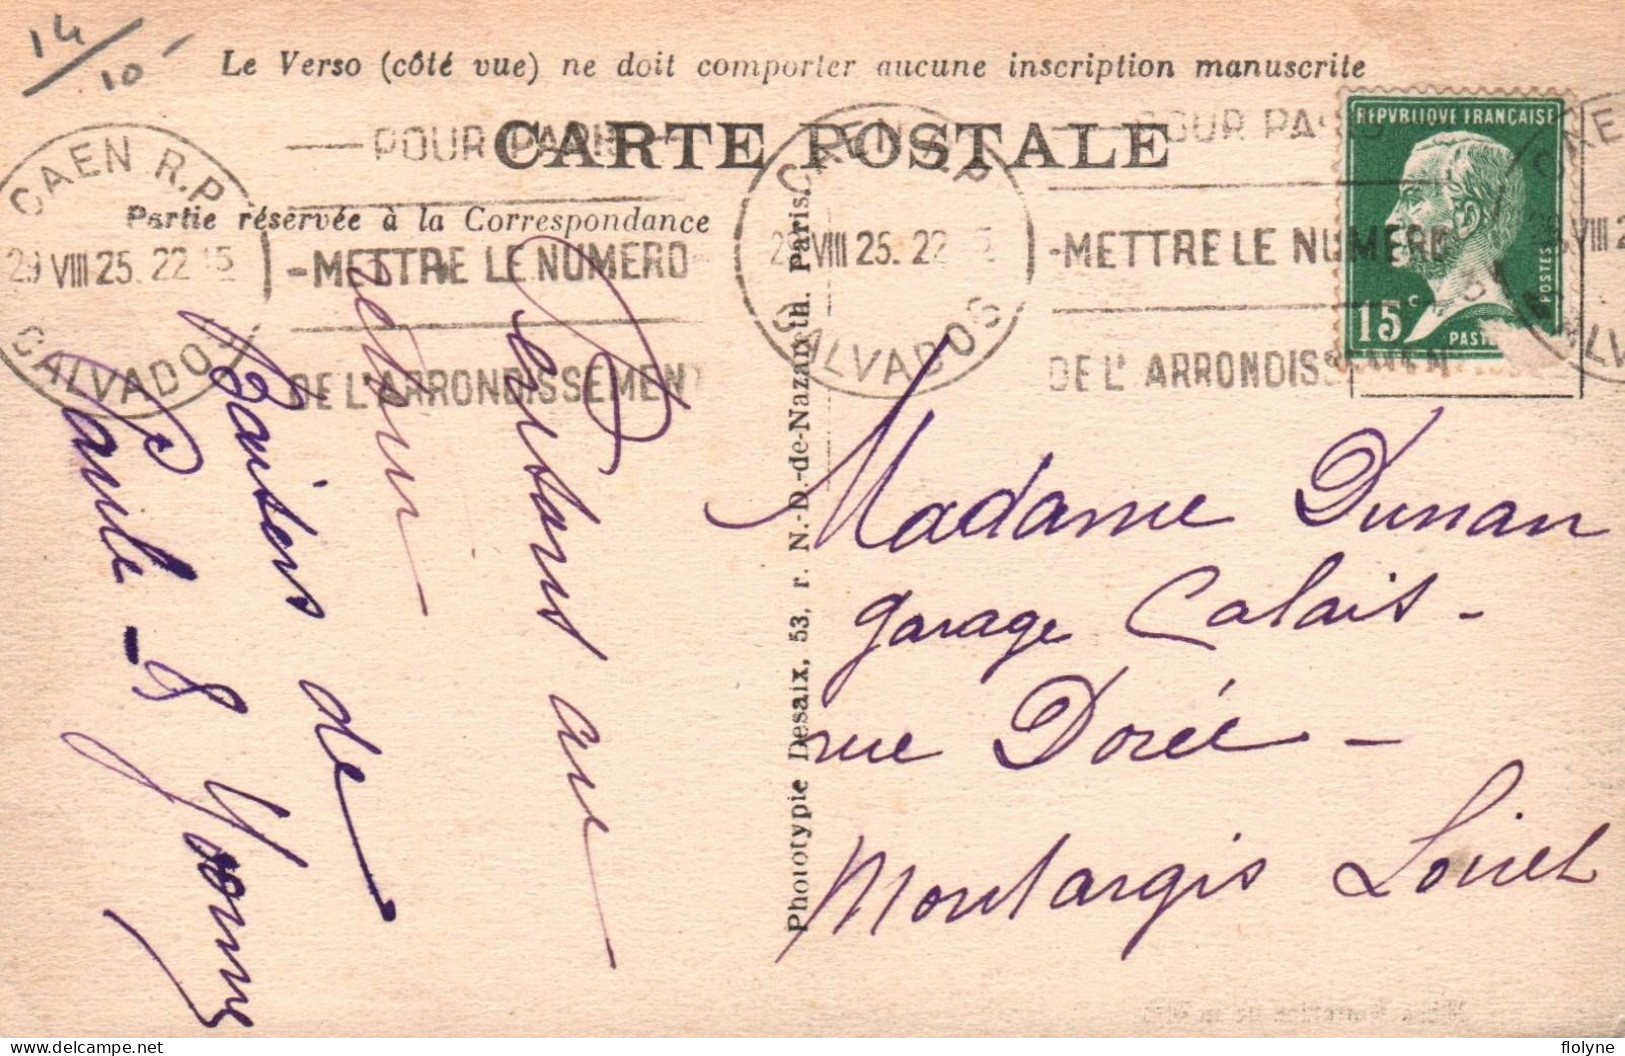 14/10
Le Verso (côté vue) ne doit comporter aucune inscription manuscrite
CARTE POSTALE
Partie réservée à la Correspondance
CAEN R.P
29 VIII 25. 22 15
CALVADOS
POUR PARIS
METTRE LE NUMERO
DE L'ARRONDISSEMENT
CAEN R.P
VIII 25. 22
CALVADOS
POUR PARIS
METTRE LE NUMERO
DE L'ARRONDISSEMEN
REPVBLIQVE FRANÇAISE
POSTES
15c
PAST
Phototypie Desaix, 53, r. N.-D.-de-Nazareth. Paris
Partons au
retour
Baisers de
Paule - &
Madame Dunan
garage Calais -
rue Dorée -
Montargis Loiret
delcampe.net
flolyne